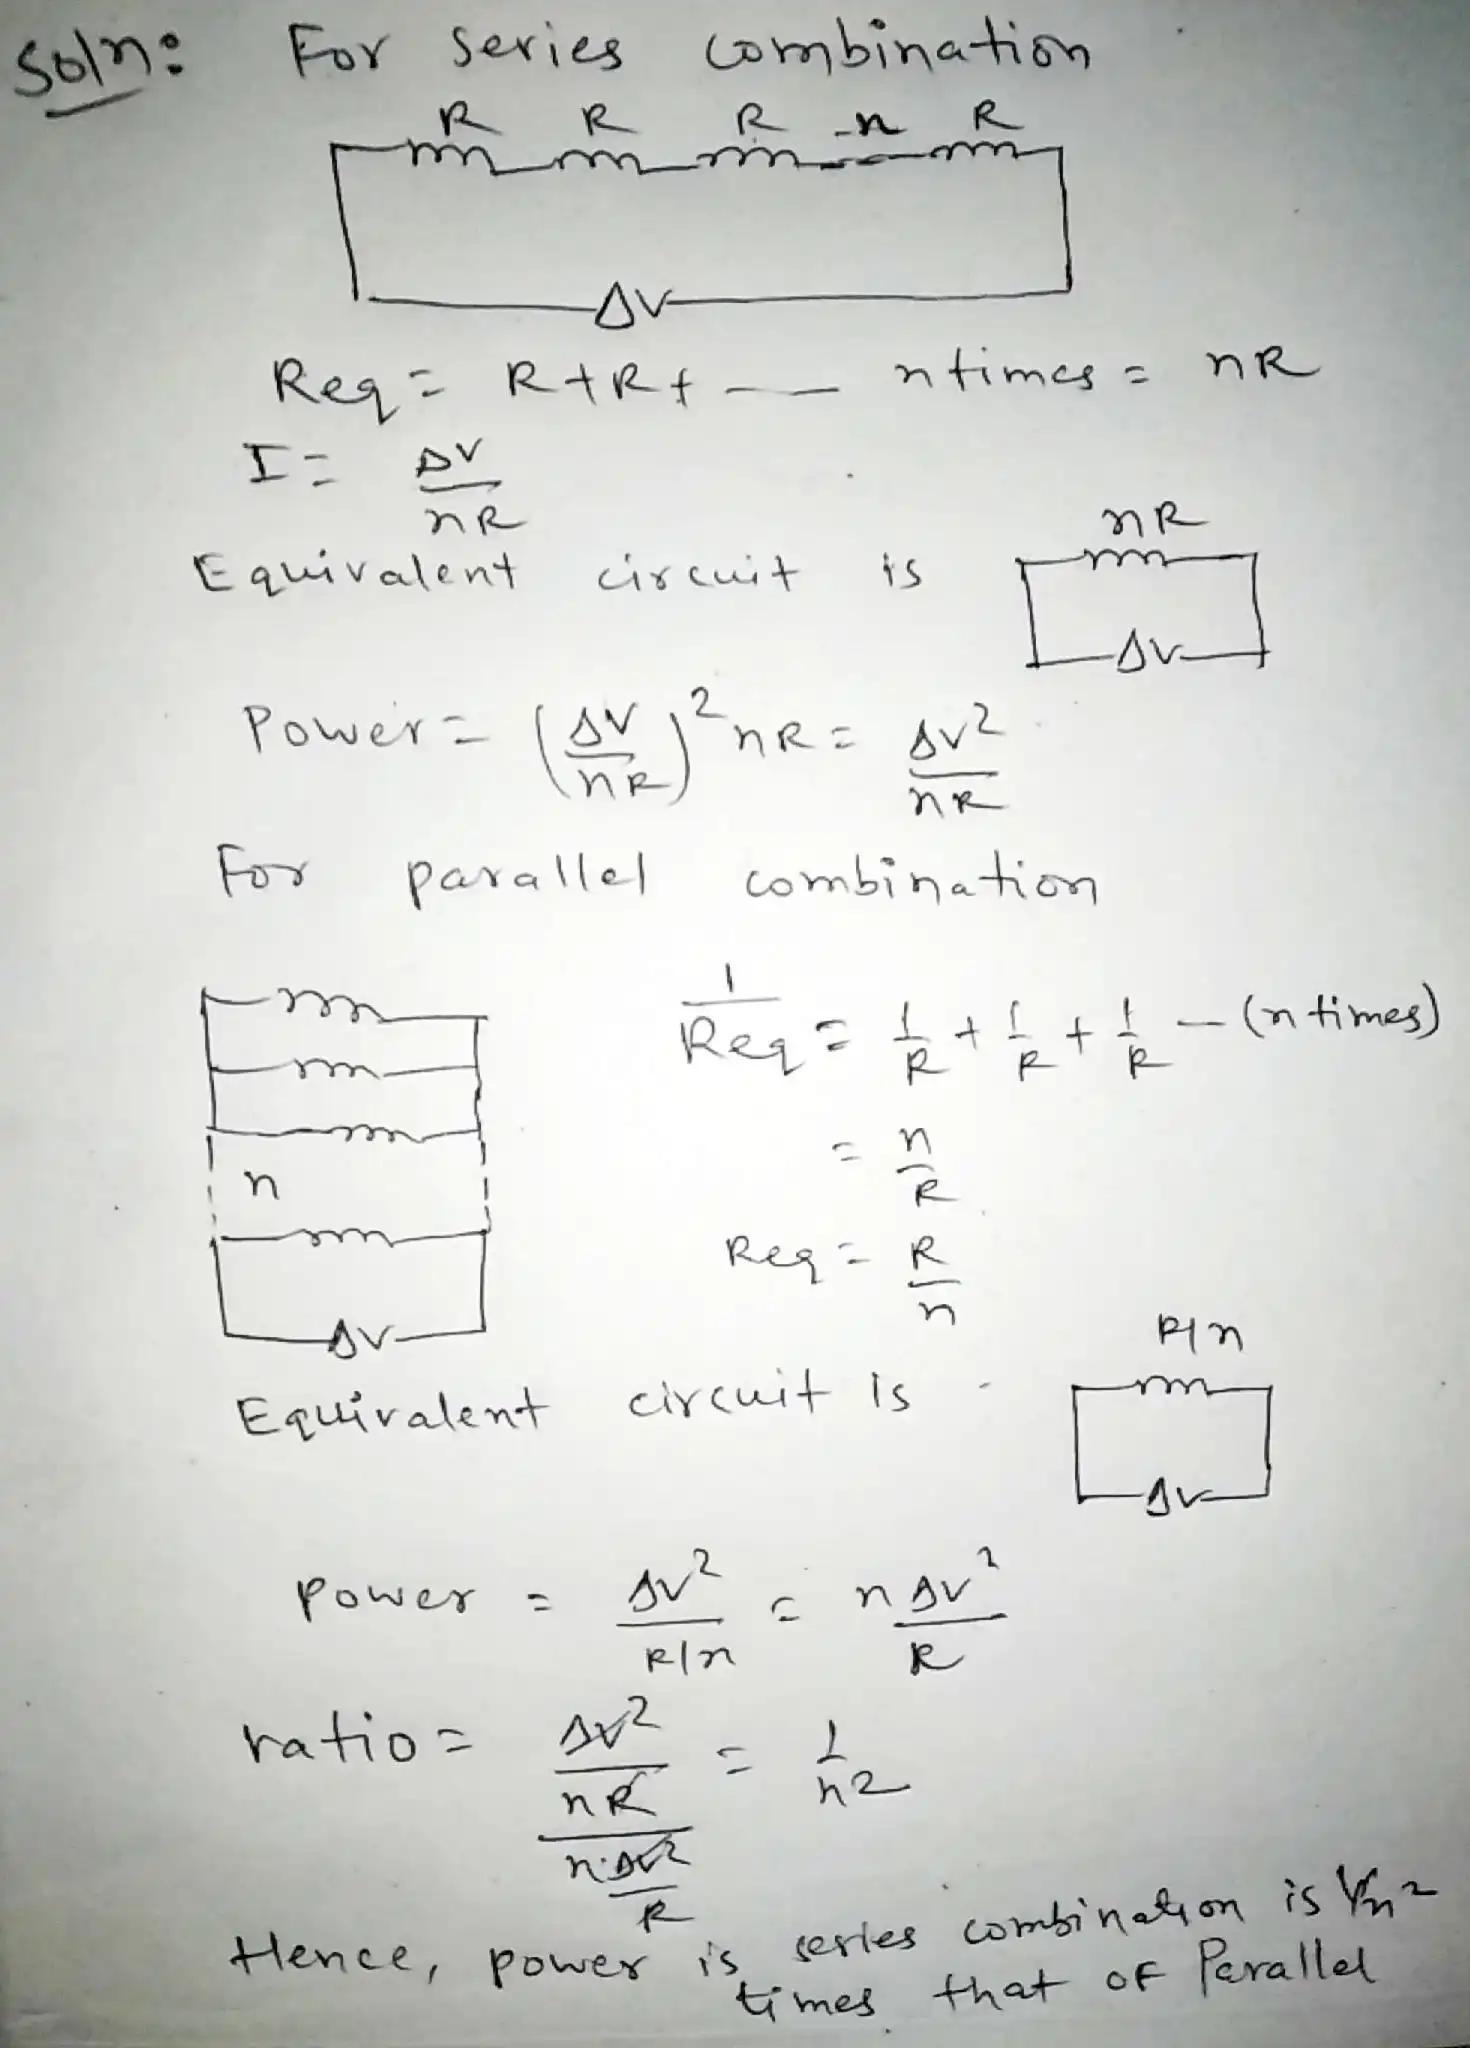 Soln: For series combination
R R R -n R
ΔV
Req = R+R+ -- n times = nR
I = ΔV/nR
nR
Equivalent circuit is
ΔV
Power = (ΔV/nR)² nR = ΔV²/nR
For parallel combination
1/Req = 1/R + 1/R + 1/R - (n times)
= n/R
n
Req = R/n
ΔV
R/n
Equivalent circuit is
ΔV
Power = ΔV²/R/n = nΔV²/R
ratio = ΔV²/nR / n·ΔV²/R = 1/n2
Hence, power is series combination is 1/n²
times that of Parallel